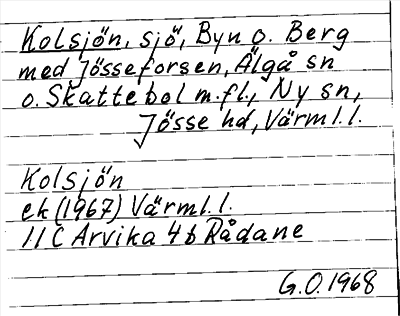 Kolsjön, sjö, Byn o. Berg
med Jösseforsen, Älgå sn
o. Skattebol m.fl., Ny sn,
Jösse hd, Värml.l.
Kolsjön
ek (1967) Värml.l.
11 C Arvika 4 b Rådane
G.O. 1968